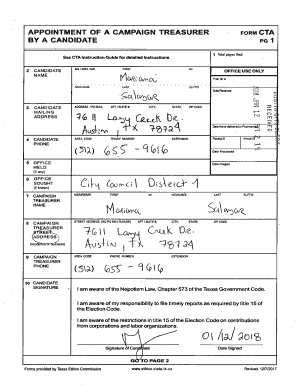 APPOINTMENT OF A CAMPAIGN TREASURER
BY A CANDIDATE
FORM CTA
PG 1
See CTA Instruction Guide for detailed instructions.
1 Total pages filed:
2 CANDIDATE NAME
MS / MRS / MR FIRST MI
Mariana
NICKNAME LAST SUFFIX
Salazar
OFFICE USE ONLY
Date Received
3 CANDIDATE MAILING ADDRESS
ADDRESS / PO BOX; APT / SUITE #; CITY; STATE; ZIP CODE
7611 Lazy Creek Dr.
Austin, TX 78724
4 CANDIDATE PHONE
AREA CODE PHONE NUMBER EXTENSION
(512) 655-9616
Date Hand-delivered or Postmarked
Receipt # Amount
Date Processed
Date Imaged
5 OFFICE HELD (if any)
6 OFFICE SOUGHT (if known)
City Council District 1
7 CAMPAIGN TREASURER NAME
MS/MRS/MR FIRST MI NICKNAME LAST SUFFIX
Mariana Salazar
8 CAMPAIGN TREASURER STREET ADDRESS
(residence or business)
STREET ADDRESS (NO PO BOX PLEASE); APT / SUITE #; CITY; STATE; ZIP CODE
7611 Lazy Creek Dr.
Austin, TX 78724
9 CAMPAIGN TREASURER PHONE
AREA CODE PHONE NUMBER EXTENSION
(512) 655-9616
10 CANDIDATE SIGNATURE
I am aware of the Nepotism Law, Chapter 573 of the Texas Government Code.
I am aware of my responsibility to file timely reports as required by title 15 of
the Election Code.
I am aware of the restrictions in title 15 of the Election Code on contributions
from corporations and labor organizations.
01/12/2018
Signature of Candidate Date Signed
GO TO PAGE 2
Forms provided by Texas Ethics Commission www.ethics.state.tx.us Revised 12/7/2017